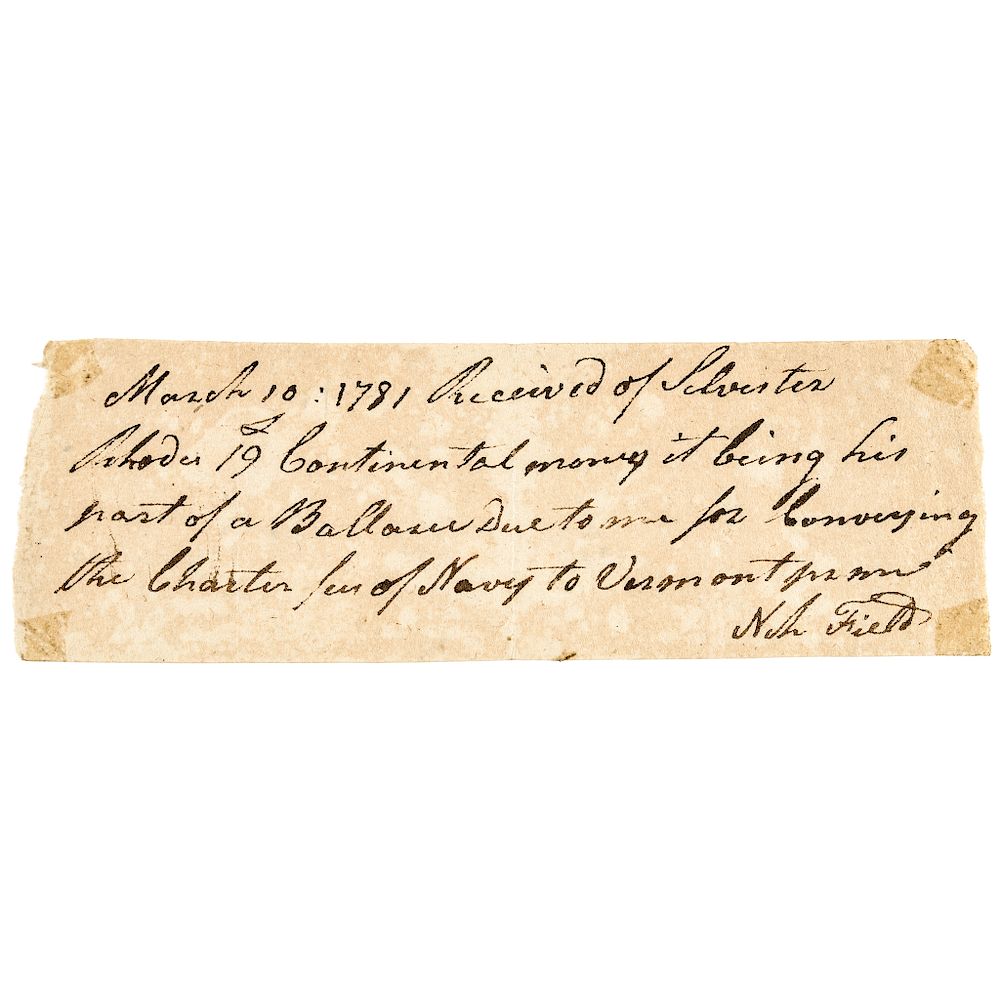 March 10 : 1781 Received of Silvester
Rhodes 19 Continental money it being his
part of a Ballance Due to me for Conveying
the Charter fees of Navy to Vermont pr me
Neh Field